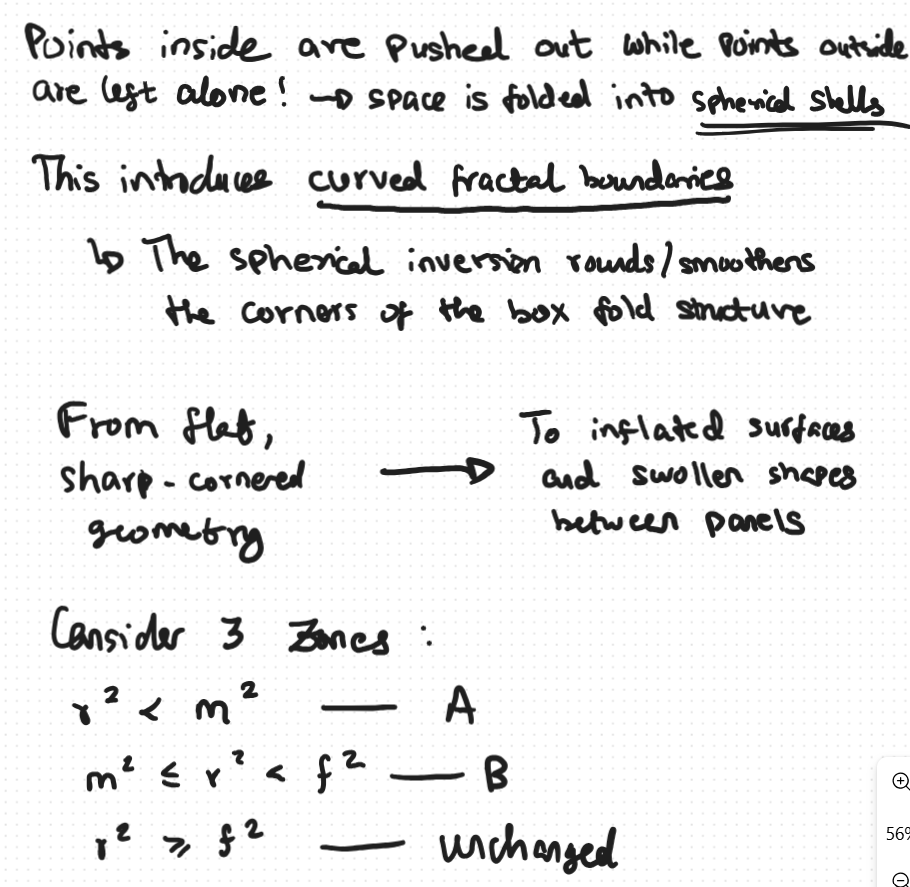 Points inside are pushed out while points outside
are left alone! → space is folded into spherical shells
This introduces curved fractal boundaries
↳ The spherical inversion rounds/smoothens
the corners of the box fold structure
From flat,
sharp-cornered
geometry
→
To inflated surfaces
and swollen shapes
between panels
Consider 3 zones :
r² < m² — A
m² ≤ r² < f² — B
r² ⩾ f² — unchanged
56%